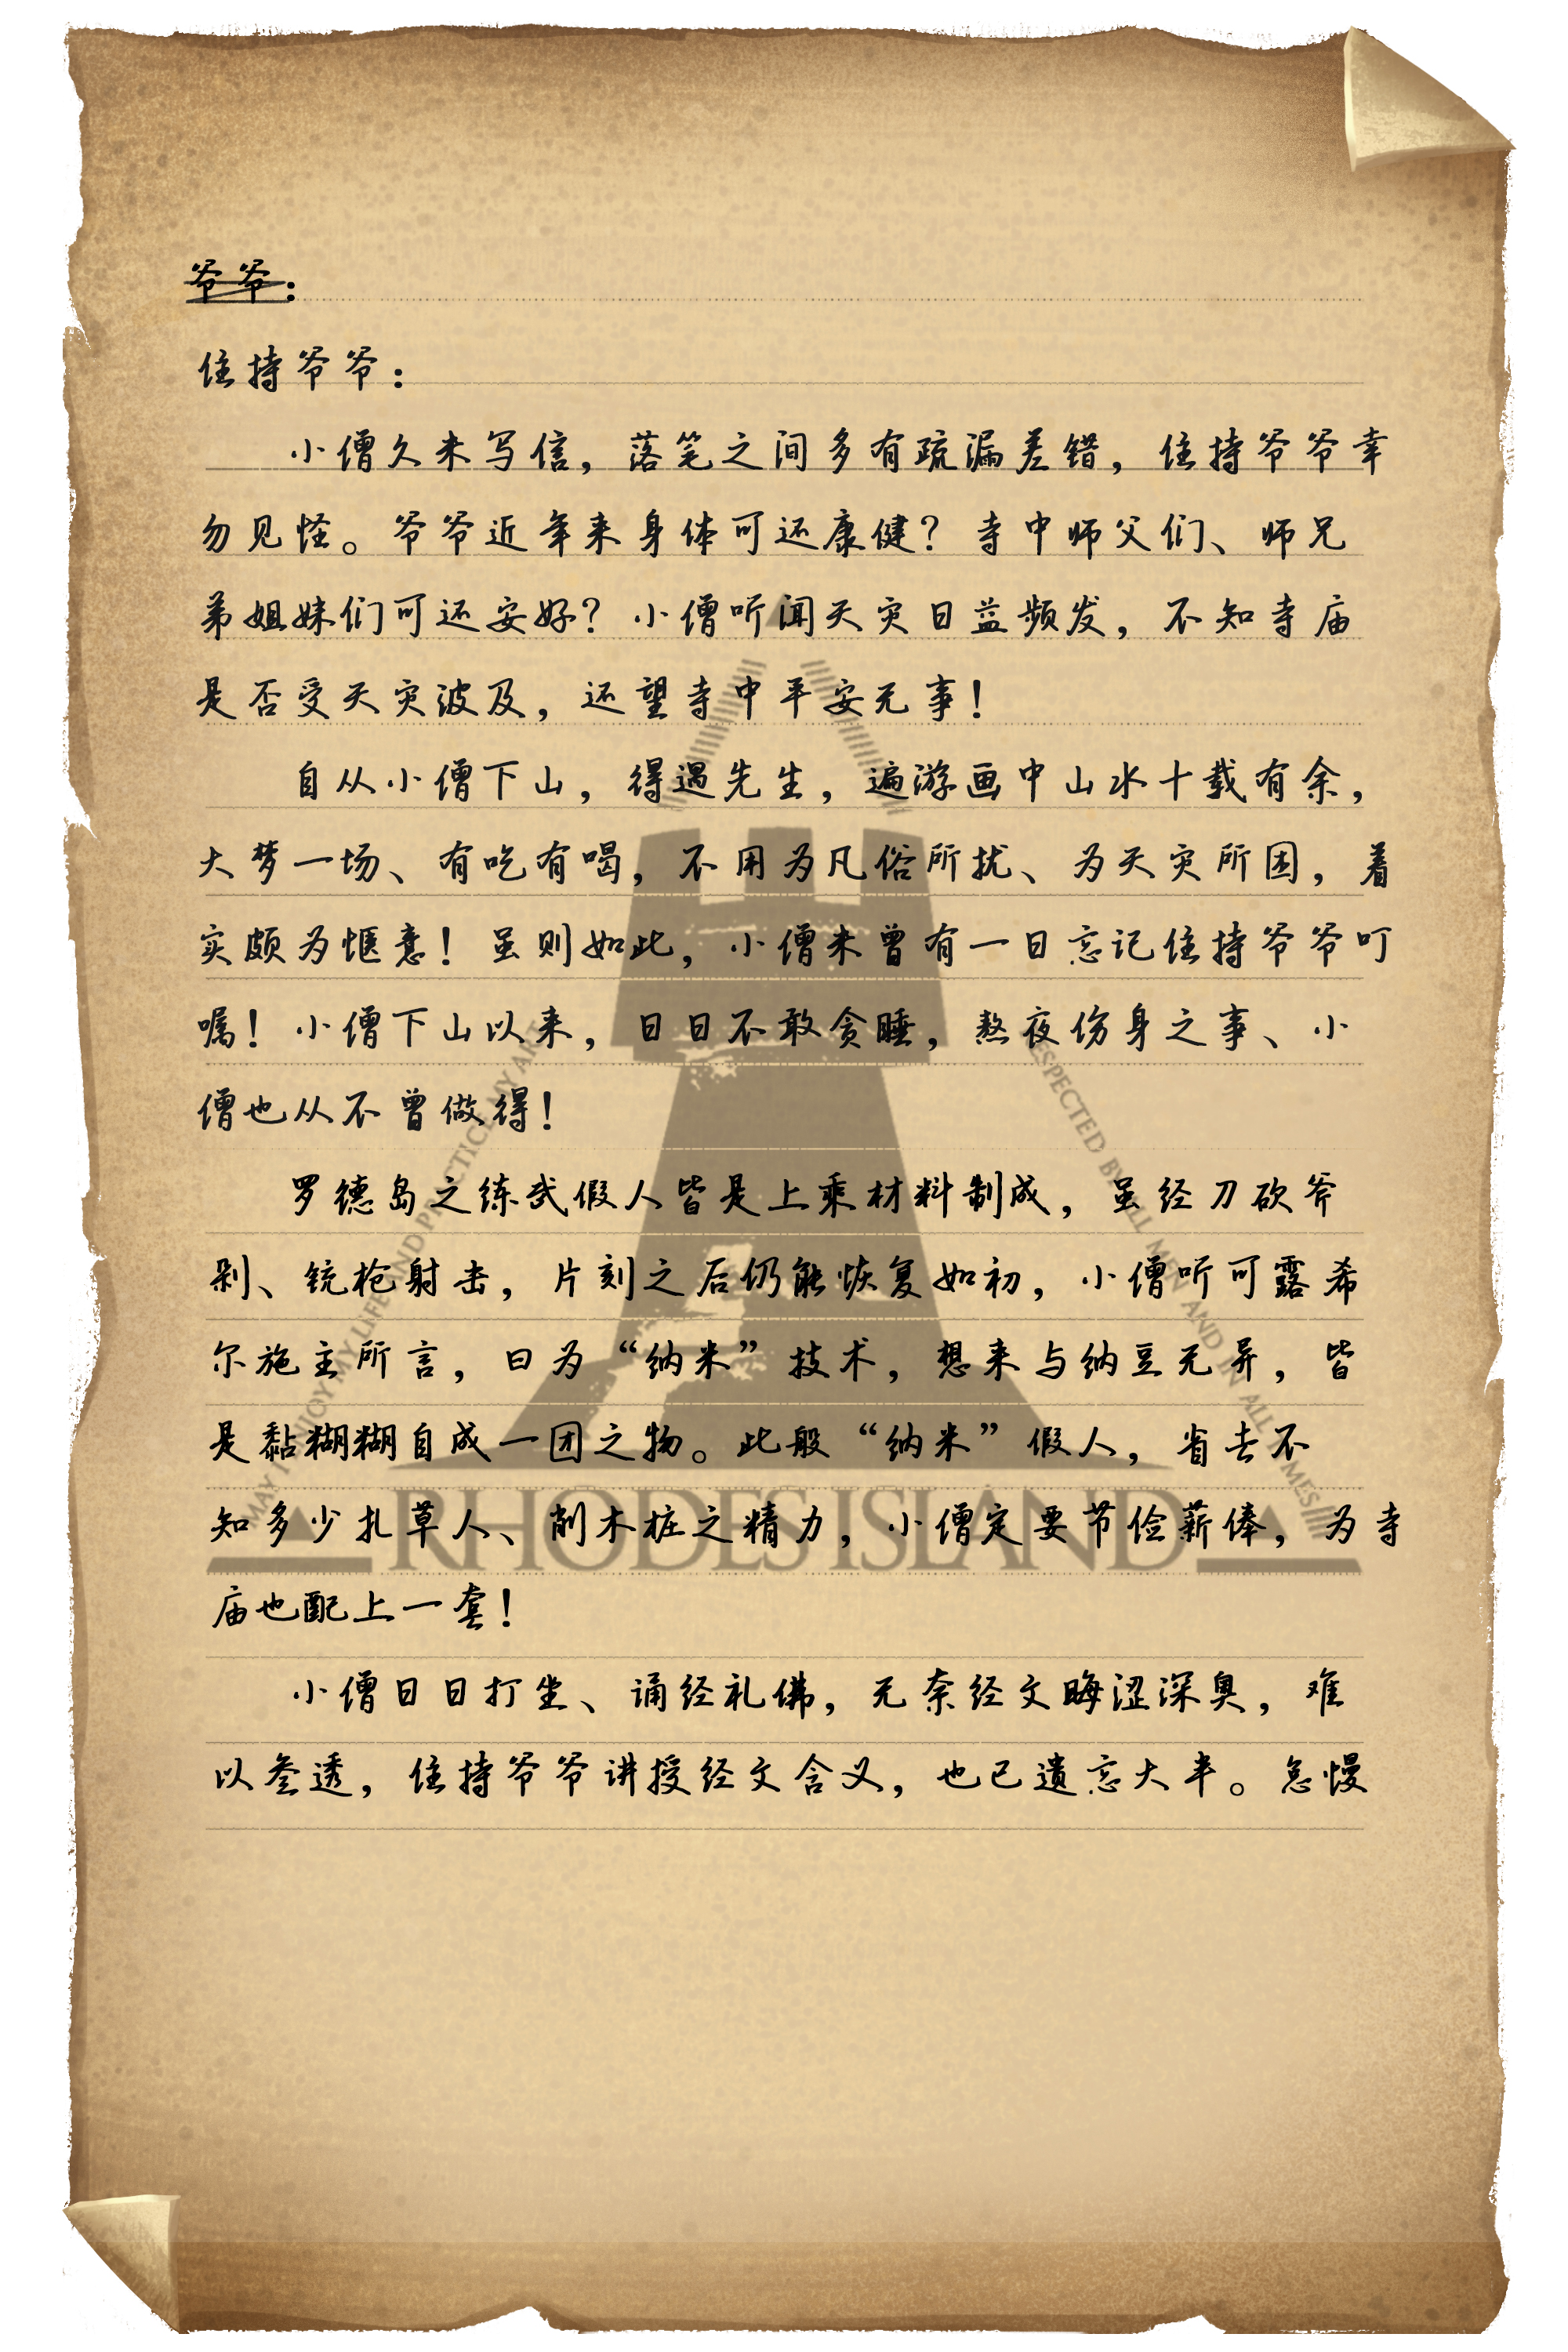 爷爷：
住持爷爷：
小僧久未写信，落笔之间多有疏漏差错，住持爷爷幸
勿见怪。爷爷近年来身体可还康健？寺中师父们、师兄
弟姐妹们可还安好？小僧听闻天灾日益频发，不知寺庙
是否受天灾波及，还望寺中平安无事！
自从小僧下山，得遇先生，遍游画中山水十载有余，
大梦一场、有吃有喝，不用为凡俗所扰、为天灾所困，着
实颇为惬意！虽则如此，小僧未曾有一日忘记住持爷爷叮
嘱！小僧下山以来，日日不敢贪睡，熬夜伤身之事、小
僧也从不曾做得！
罗德岛之练武假人皆是上乘材料制成，虽经刀砍斧
剁、铳枪射击，片刻之后仍能恢复如初，小僧听可露希
尔施主所言，曰为“纳米”技术，想来与纳豆无异，皆
是黏糊糊自成一团之物。此般“纳米”假人，省去不
知多少扎草人、削木桩之精力，小僧定要节俭薪俸，为寺
庙也配上一套！
小僧日日打坐、诵经礼佛，无奈经文晦涩深奥，难
以参透，住持爷爷讲授经文含义，也已遗忘大半。怠慢
RHODES ISLAND
MAY I ENJOY MY LIFE AND PRACTICE MY ART
RESPECTED BY ALL MEN AND IN ALL TIMES